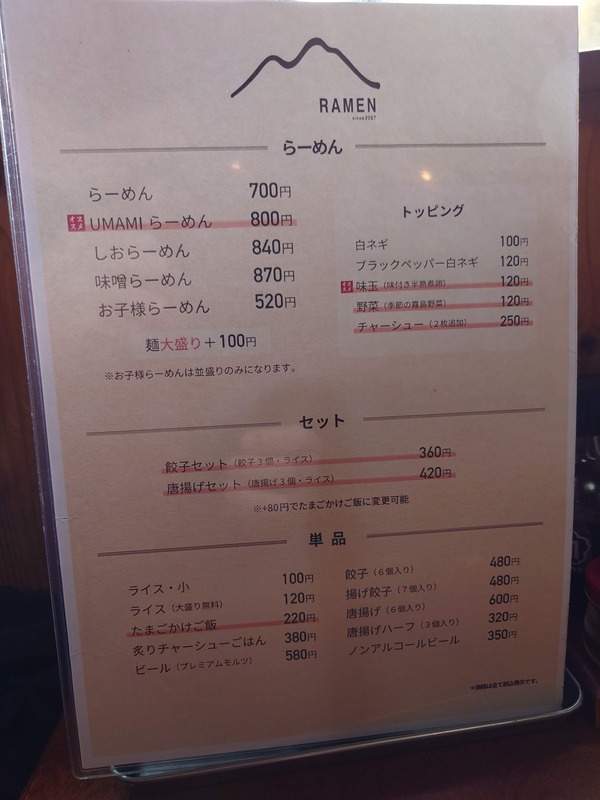 RAMEN
since3087
らーめん
らーめん 700円
オススメ UMAMI らーめん 800円
しおらーめん 840円
味噌らーめん 870円
お子様らーめん 520円
麺大盛り+100円
※お子様らーめんは並盛りのみになります。
トッピング
白ネギ 100円
ブラックペッパー白ネギ 120円
味玉(味付き半熟煮卵) 120円
野菜(季節の霧島野菜) 120円
チャーシュー(2枚追加) 250円
セット
餃子セット(餃子3個・ライス) 360円
唐揚げセット(唐揚げ3個・ライス) 420円
※+80円でたまごかけご飯に変更可能
単品
ライス・小 100円
ライス(大盛り無料) 120円
たまごかけご飯 220円
炙りチャーシューごはん 380円
ビール(プレミアムモルツ) 580円
餃子(6個入り) 480円
揚げ餃子(7個入り) 480円
唐揚げ(6個入り) 600円
唐揚げハーフ(3個入り) 320円
ノンアルコールビール 350円
※価格は全て税込表示です。